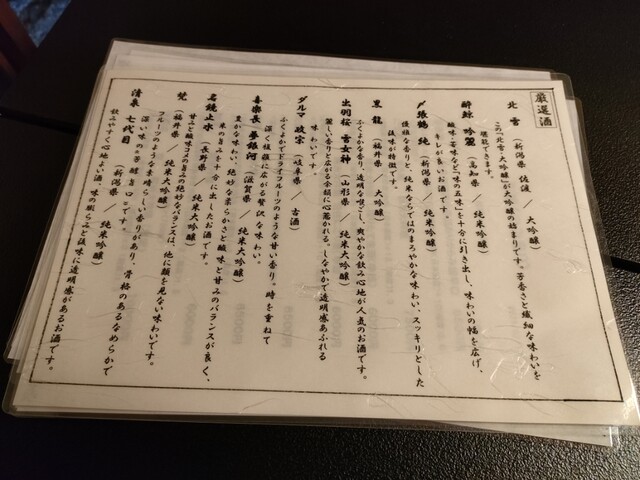 厳選酒
北雪 （新潟県 佐渡 ／ 大吟醸）
この「北雪 大吟醸」が大吟醸の始まりです。芳香さと繊細な味わいを
堪能できます。
酔鯨 吟麗 （高知県 ／ 純米吟醸）
酸味、苦味など「味の五味」を十分に引き出し、味わいの幅を広げ、
キレが良いお酒です。
〆張鶴 純 （新潟県 ／ 純米吟醸）
優雅な香りと、純米ならではのまろやかな味わい、スッキリとした
後味が特徴です。
黒龍 （福井県 ／ 大吟醸）
ふくよかな香り、透明な喉ごし、爽やかな飲み心地が人気のお酒です。
出羽桜 雪女神 （山形県 ／ 純米大吟醸）
麗しい香りと広がる余韻に心惹かれる。しなやかで透明感あふれる
味わいです。
ダルマ 政宗 （岐阜県 ／ 古酒）
ふくよかでドライフルーツのような甘い香り。時を重ねて
深く複雑に広がる贅沢な味わい。
喜楽長 夢銀河 （滋賀県 ／ 純米大吟醸）
豊かな味わい、絶妙な柔らかさと酸味と甘みのバランスが良く、
米の旨みを十分に出したお酒です。
名鏡止水 （長野県 ／ 純米吟醸）
甘みと酸味コメの旨みの絶妙なバランスは、他に類を見ない味わいです。
梵 （福井県 ／ 純米大吟醸）
フルーツのような素晴らしい香りがあり、骨格のあるなめらかで
深い味の「芳醇旨口」です。
清泉 七代目 （新潟県 ／ 純米吟醸）
飲みやすく心地よい酒、味の膨らみと後味に透明感があるお酒です。